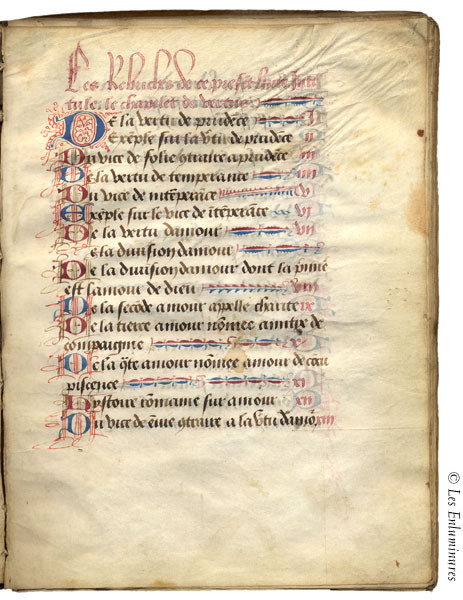 Les Rebriches de ce present livre inti
tule le chapelet de vertus
De la vertu de prudēce II
Exēple sur la v̄tu de prudēce II
Du vice de folie ɔtraire a prudēce III
De la vertu de temperance
Du vice de intēperāce VI
Exēple sur le vice de ītēperāce VI
De la vertu damour VII
De la division damour
De la division damour dont la p̄mie
est lamour de dieu VIII
De la secōde amour appelle charite IX
De la tierce amour nōmee amitie de
compaignie X
De la q̄te amour nōmee amour de cōcu
piscence XI
Hystoire rommaine sur amour XII
Du vice de ēvie ɔtraire a la v̄tu damo᷑ XIII
© Les Enluminures